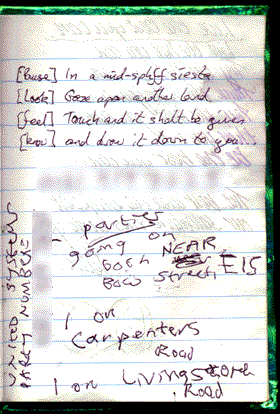 [pause] In a mid-spliff siesta
[Look] Gaze upon another land
[feel] Touch and it shall be given
[know] and draw it down to you...
UNITED SYSTEMS
PARTY NUMBERS
- parties
going on
both NEAR
Bow Street E15
1 on
Carpenters
Road
1 on Livingstone
Road